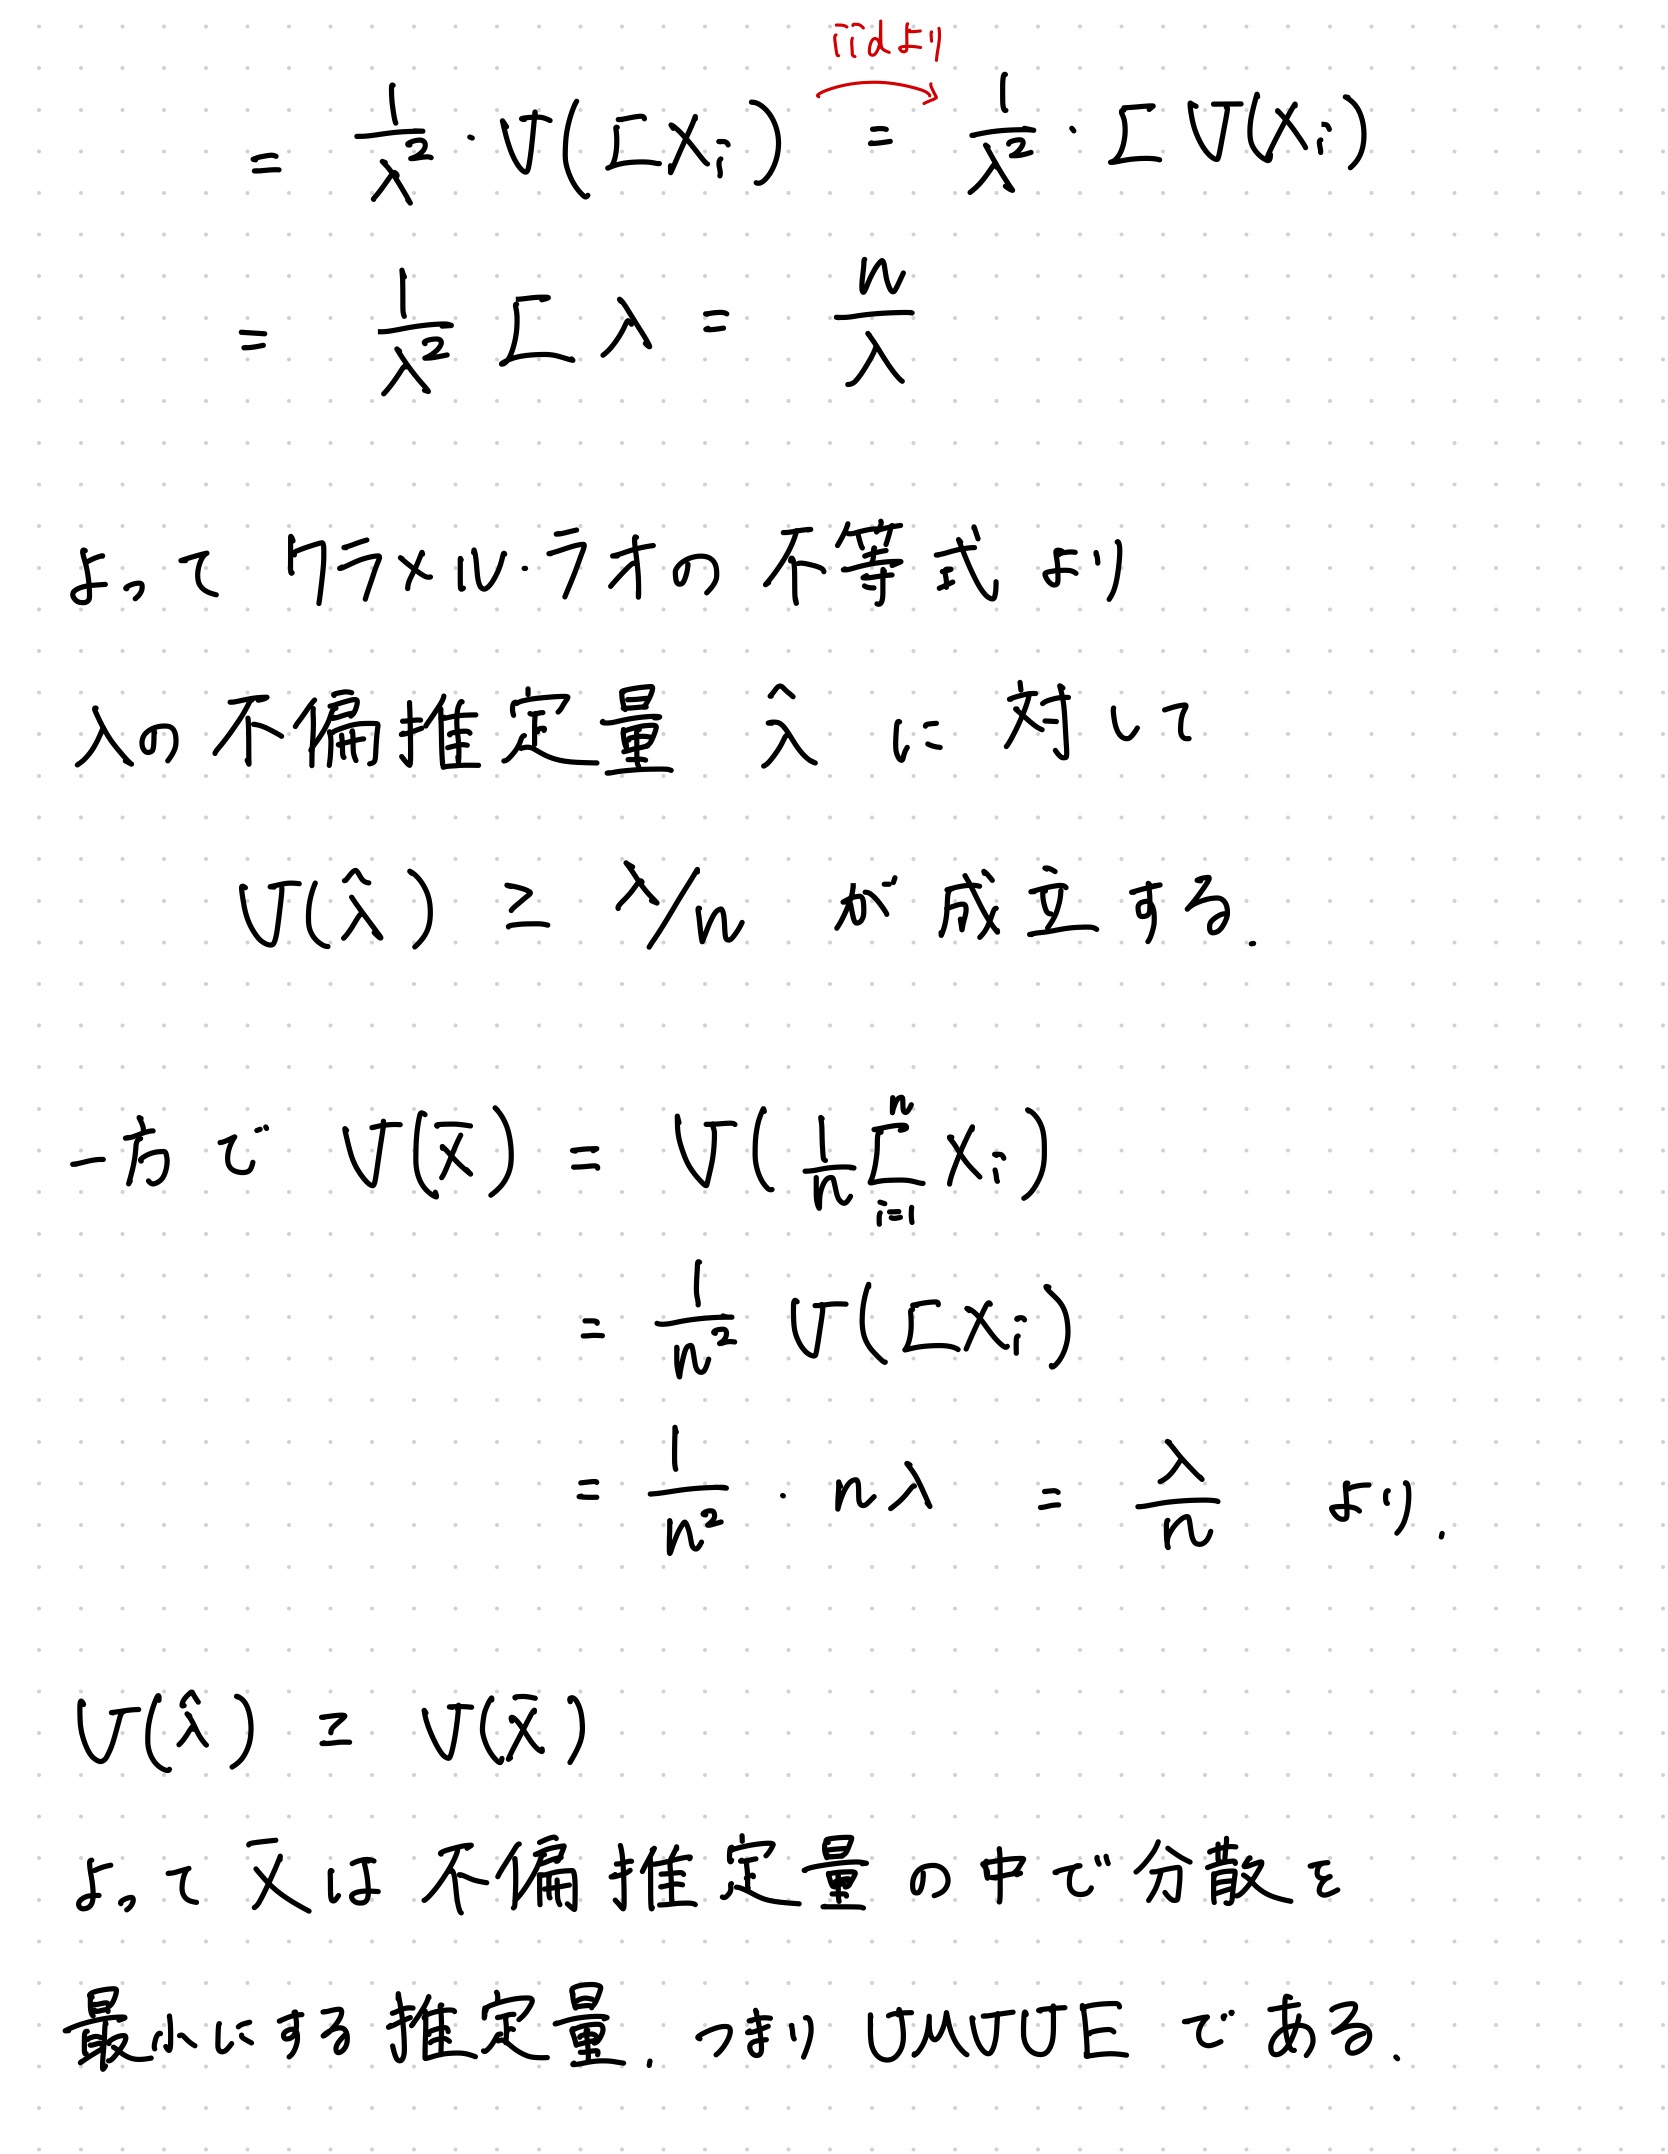 iidより
= 1/λ² · V(ΣXi) = 1/λ² · ΣV(Xi)
= 1/λ² Σ λ = n/λ
よって クラメル・ラオの不等式より
λの不偏推定量 λ̂ に対して
V(λ̂) ≥ λ/n が成立する.
一方で V(x̄) = V(1/n Σ_{i=1}^{n} Xi)
= 1/n² V(ΣXi)
= 1/n² · nλ = λ/n より.
V(λ̂) ≥ V(x̄)
よって x̄は不偏推定量の中で分散を
最小にする推定量. つまり UMVUEである.